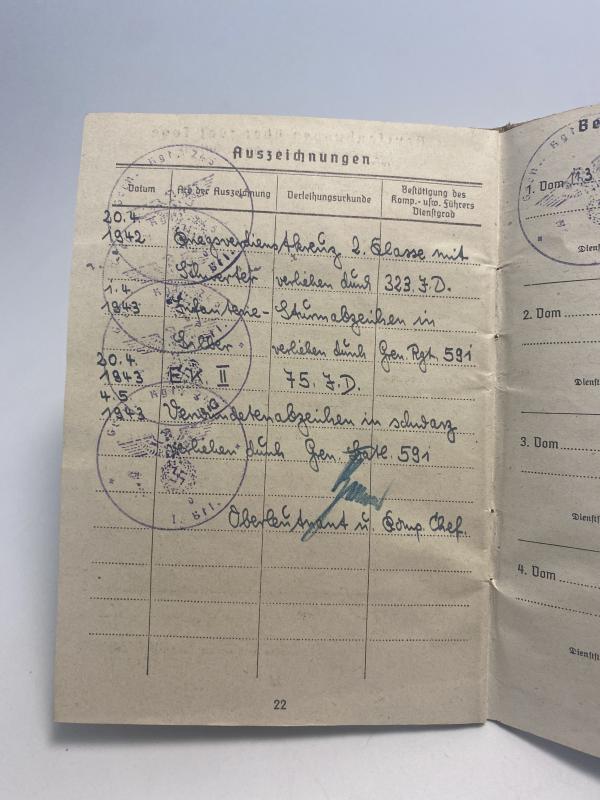 Auszeichnungen
Datum Art der Auszeichnung Verleihungsurkunde Bestätigung des Komp.- usw. Führers Dienstgrad
20.4.
1942 Kriegsverdienstkreuz 2. Classe mit
Schwerter verliehen durch 323. J. D.
1.4
1943 Infanterie-Sturmabzeihen in
Silber verliehen durch Gren. Rgt. 591
20.4.
1943 E K II 75. J. D.
4.5
1943 Verwundetenabzeihen in schwarz
verliehen durch Gren. Batl. 591
Oberleutnant u. Komp. Chef.
22
Be
1. Vom 11.3
Dienst
2. Vom
Dienstst
3. Vom
Dienstst
4. Vom
Dienstst
Gren. Rgt. 245
I. Btl.